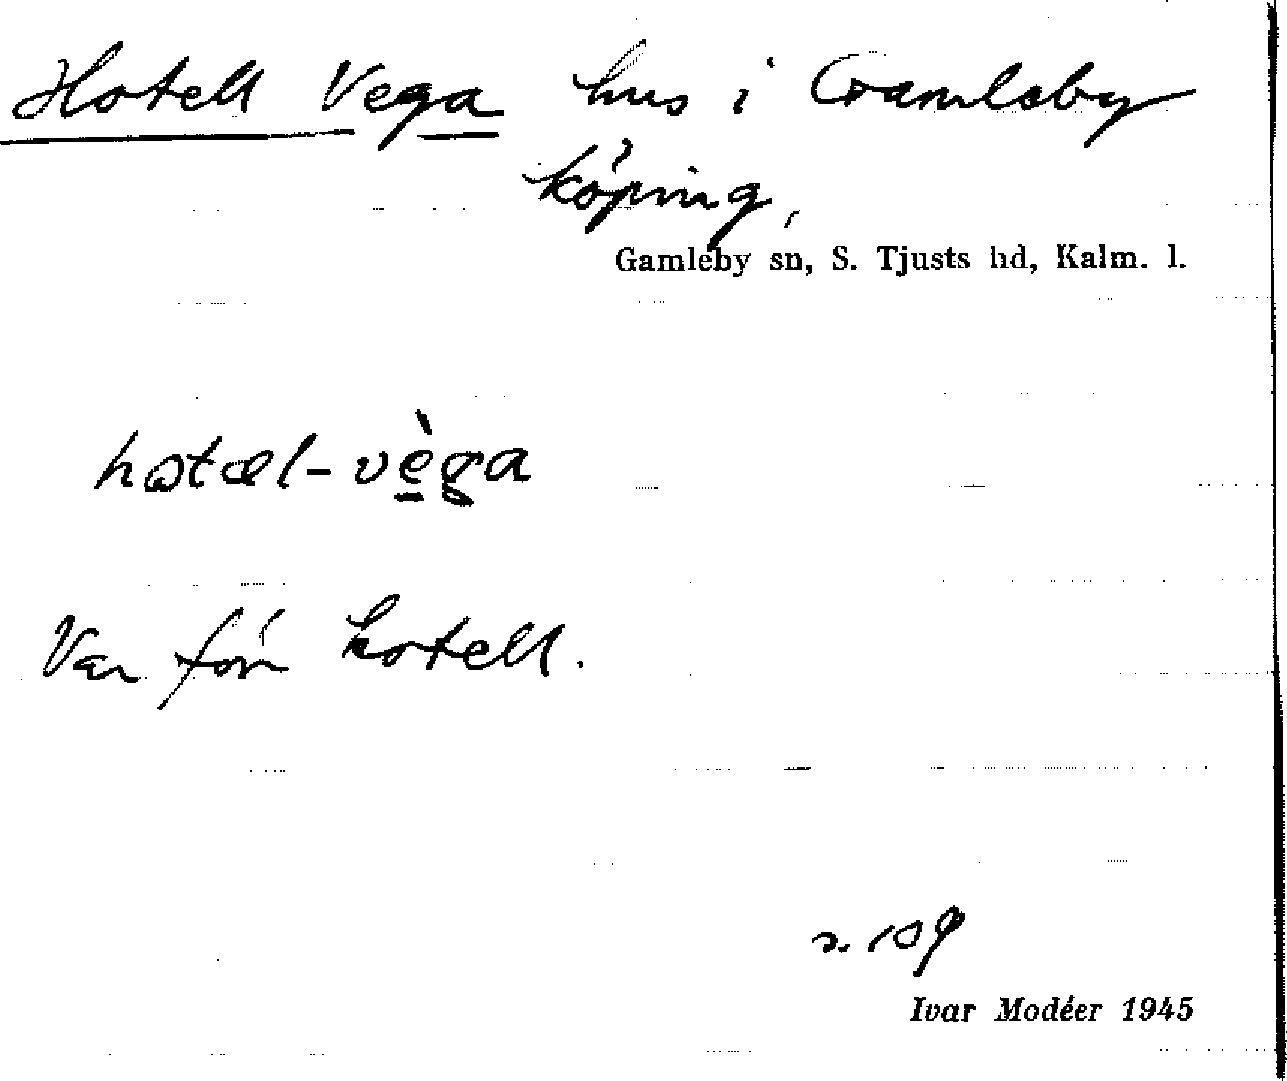 Hotell Vega hus i Gamleby
köping,
Gamleby sn, S. Tjusts hd, Kalm. l.
hotæl-vèga
Var förr hotell.
s. 109
Ivar Modéer 1945